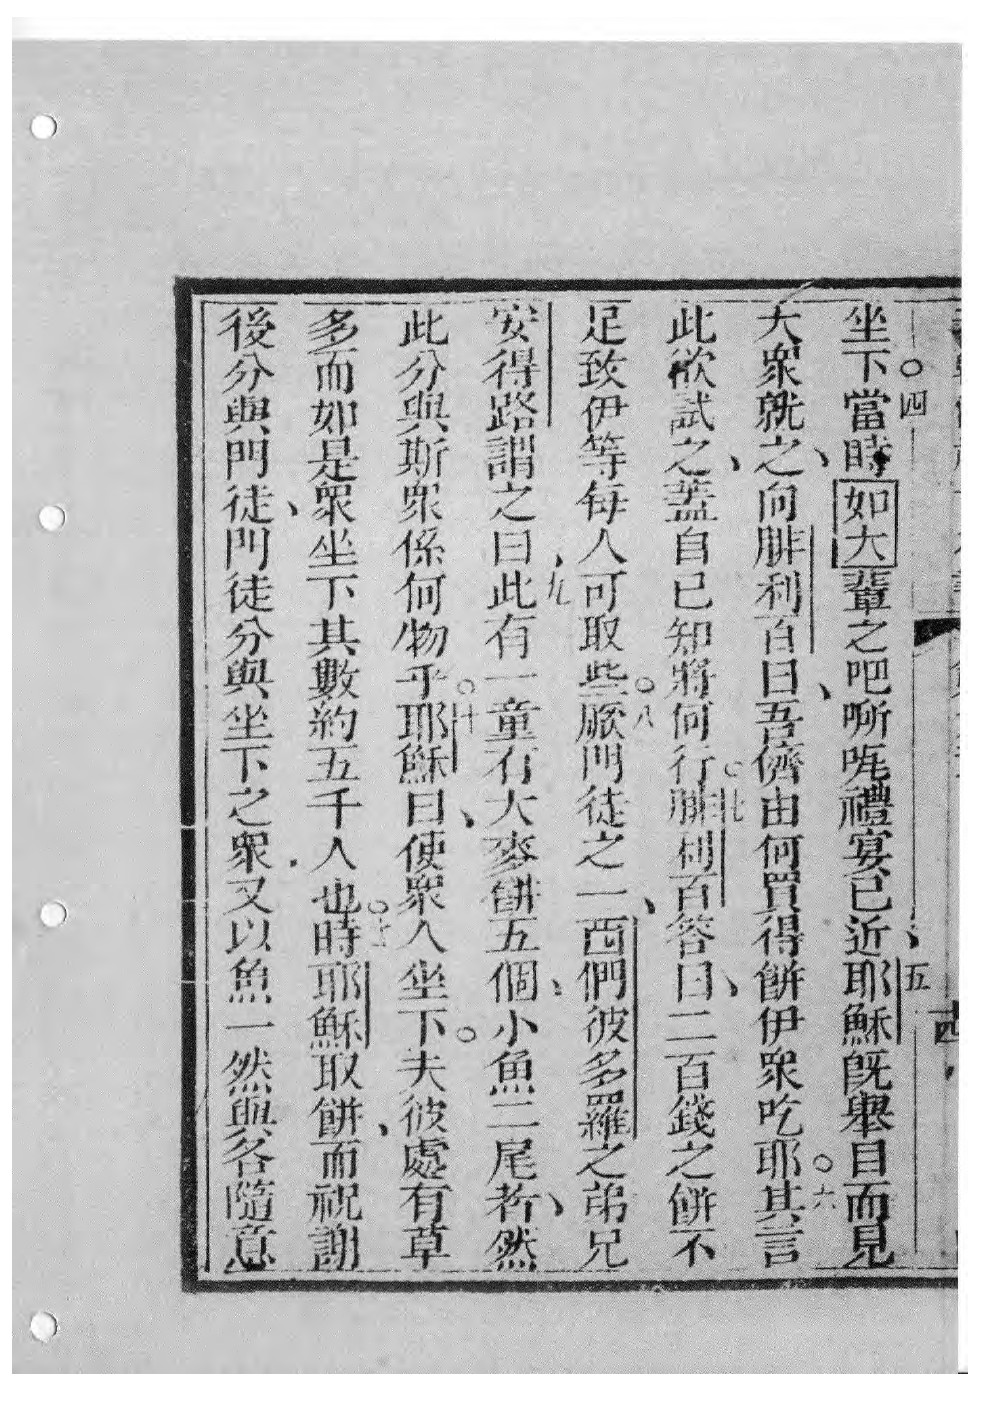 坐下○四當時如大輩之吧㘔㖠禮宴已近、五耶穌既舉目而見
大衆就之、向腓利百曰、吾儕由何買得餅伊衆吃耶○六其言
此欲試之、蓋自己知將何行○七腓利百答曰、二百錢之餅不
足致伊等每人可取些○八厥門徒之一、西們彼多羅之弟兄
安得路謂之曰、九此有一童有大麥餅五個、小魚二尾者、然
此分與斯衆係何物乎○十耶穌曰、使衆人坐下○夫彼處有草
多而如是衆坐下其數約五千人也○十一時耶穌取餅、而祝謝
後分與門徒、門徒分與坐下之衆又以魚一然與各隨意